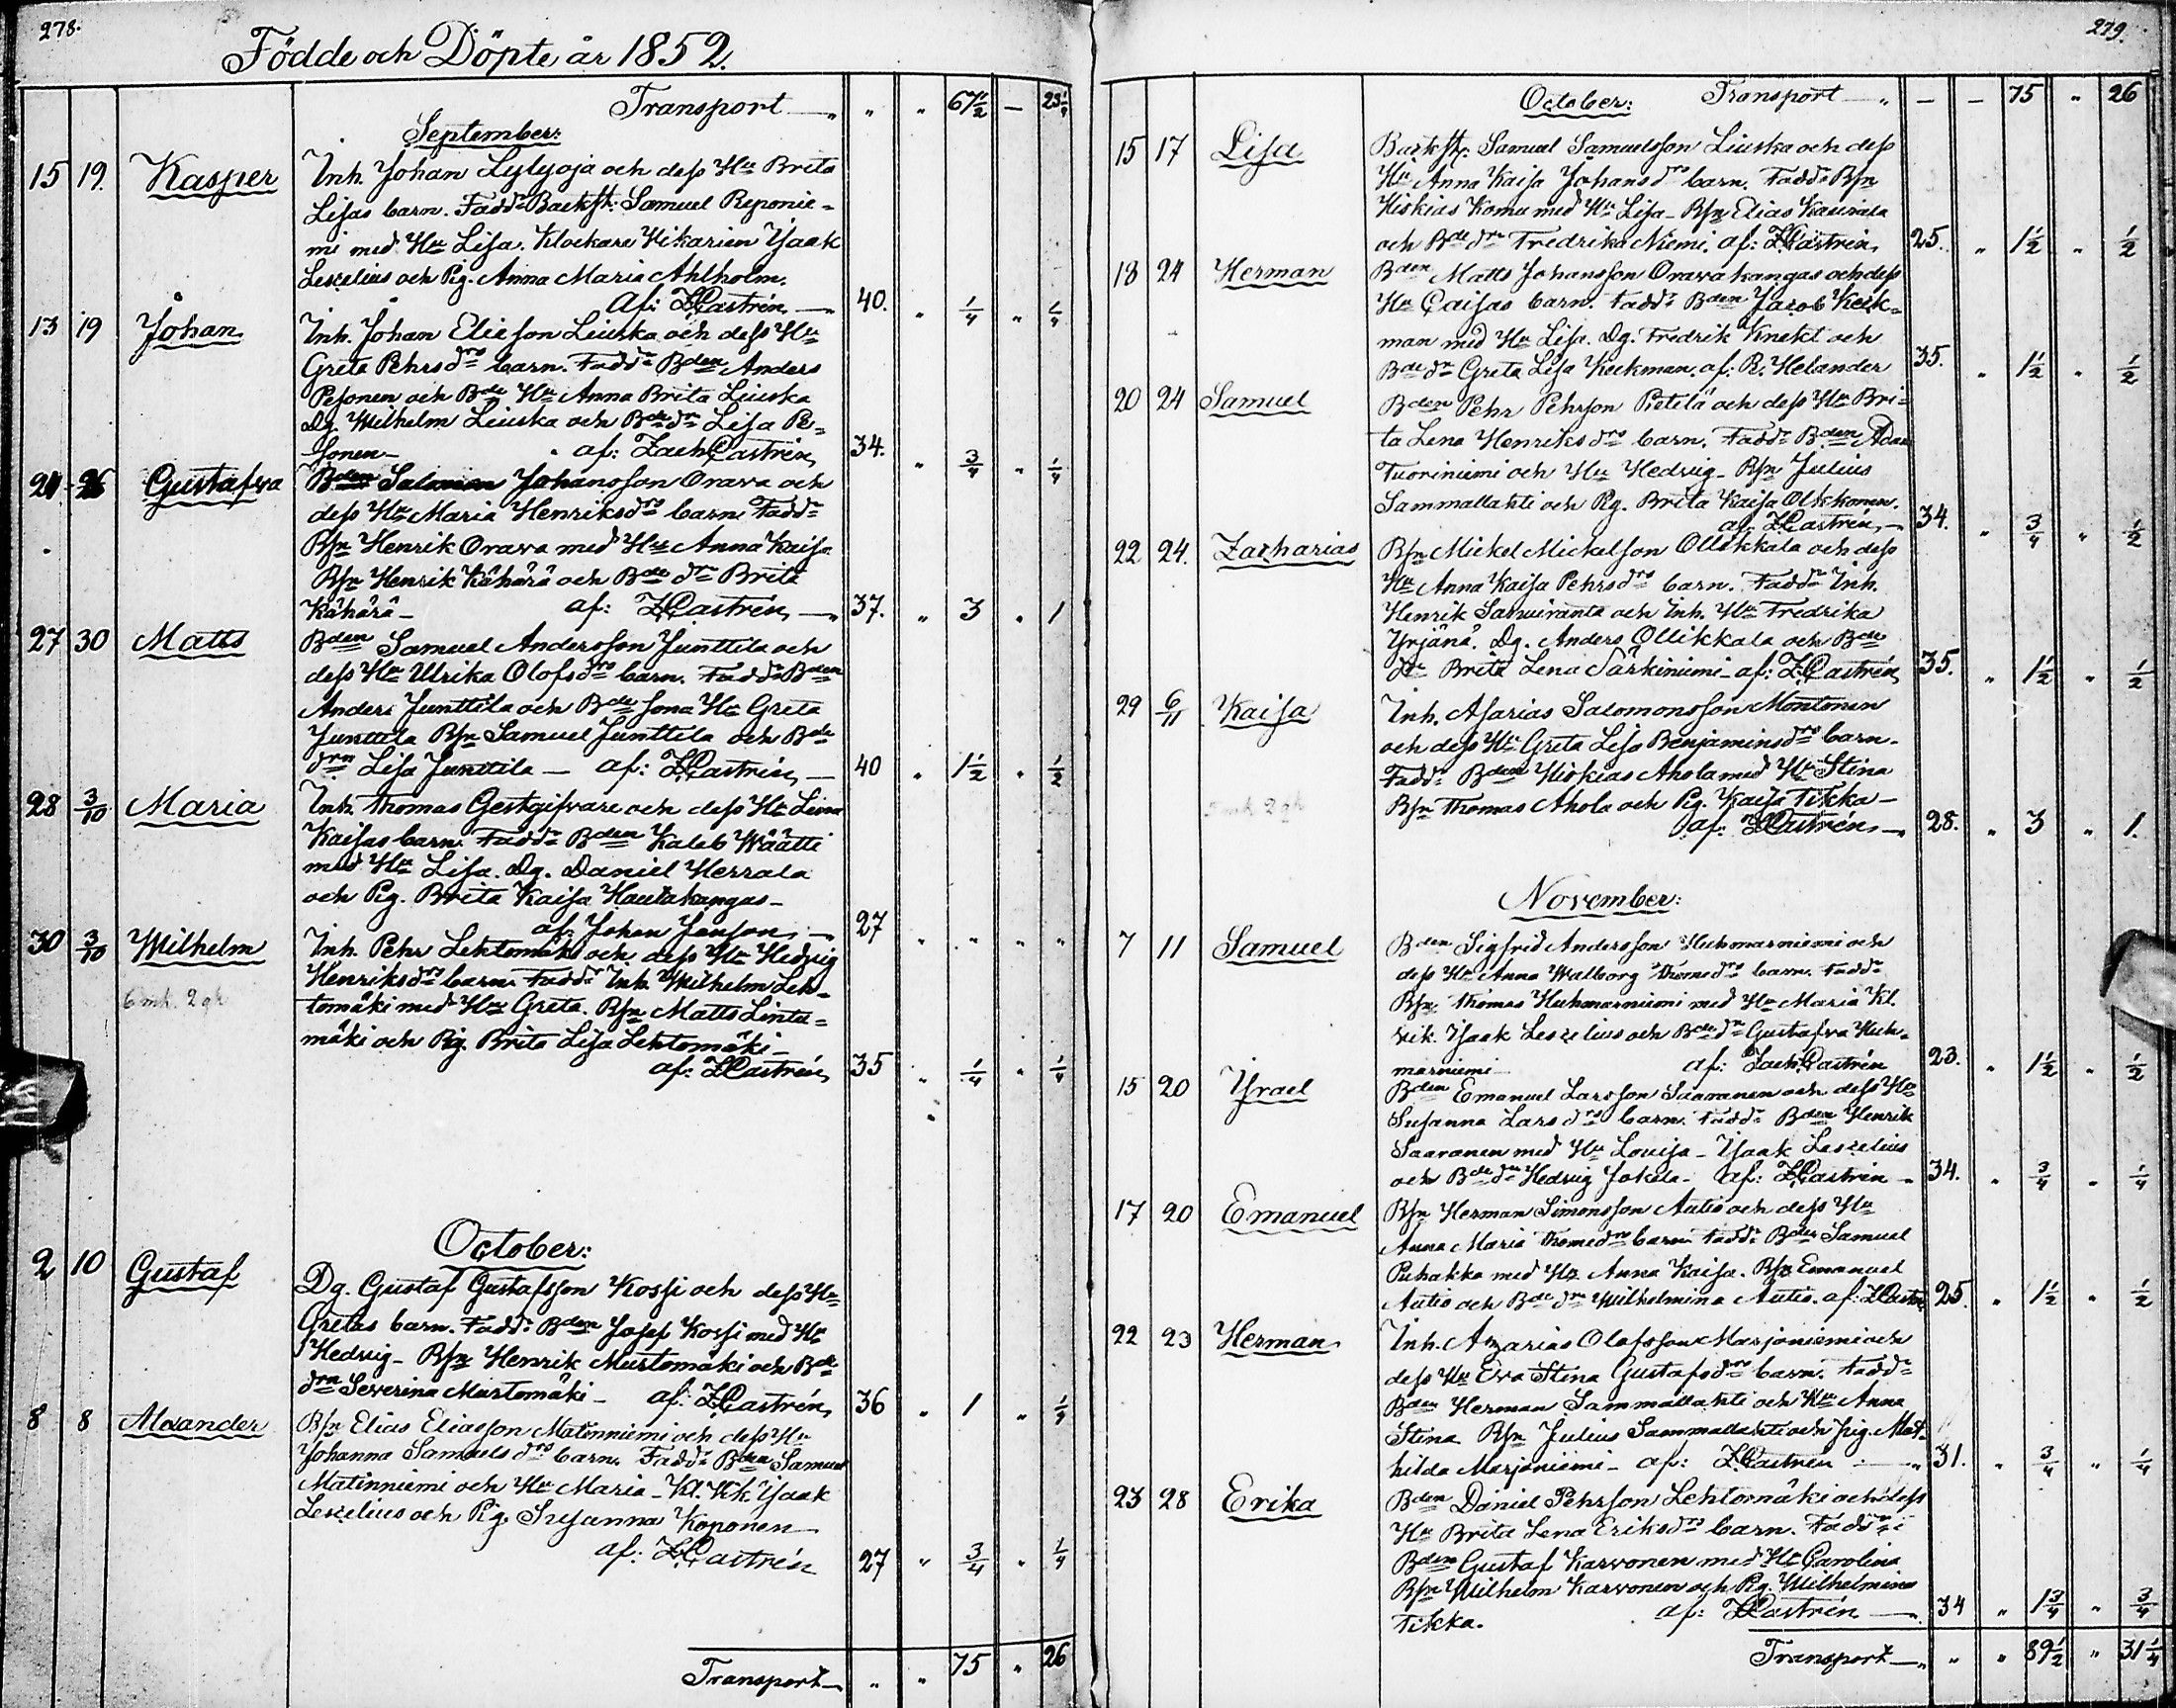 278.
Födde och Döpte år 1852.
Transport — " " 67½ — 23¼
September:
15 19. Kasper Inh. Johan Lylyoja och dess Hu Brita
Lisas barn. Faddr Backst: Samuel Reponie-
mi med Hu Lisa. Klockare Vikarien Isaak
Lescelius och Pig. Anna Maria Ahlholm.
af: Z.Castrén — 40. " ¼ " ¼
13 19 Johan Inh. Johan Elieson Liuska och dess Hu
Greta Pehrsdrs barn. Faddr Bden Anders
Pesonen och Bde Hu Anna Brita Liuska
Dg. Wilhelm Liuska och Bde dr Lisa Pe-
sonen — af: Zach Castrén, 34. " ¾ " ¼
24 26 Gustafva Bden Salomon Johansson Orava och
dess Hu Maria Henriksdrs barn. Faddr
Bsn Henrik Orava med Hu Anna Kaisa
Bsn Henrik Kähärä och Bde dr Brita
Kähärä — af: Z.Castrén — 37. " 3 " 1
27 30 Matts Bden Samuel Andersson Junttila och
dess Hu Ulrika Olofsdrs barn. Faddr Bden
Anders Junttila och Bde sons Hu Greta
Junttila Bsn Samuel Junttila och Bde
drn Lisa Junttila — af: Z.Castrén, — 40 " 1½ " ½
28 3/10 Maria Inh. Thomas Gestgifvare och dess Hu Lena
Kaisas barn. Faddr Bden Kaleb Wäätti
med Hu Lisa. Dg. Daniel Herrala
och Pig. Brita Kaisa Hautakangas —
af: Johan Jonson, — 27 " " " "
30 3/10 Wilhelm Inh. Pehr Lehtomäki och dess Hu Hedvig
Henriksdrs barn. Faddr Inh. Wilhelm Leh-
6 mk. 2 gk
tomäki med Hu Greta. Bsn Matts Lintu-
mäki och Pig. Brita Lisa Lehtomäki —
af: Z.Castrén, 35 " ¼ " ¼
October:
2 10 Gustaf Dg. Gustaf Gustafsson Kossi och dess Hu
Gretas barn. Faddr Bden Josef Kossi med Hu
Hedvig — Bsn Henrik Mustomäki och Bde
drn Severina Mustomäki — af: Z.Castrén, 36 " 1 " ¼
8 8 Alexander Bsn Elias Eliasson Matinniemi och dess Hu
Johanna Samuelsdrs barn. Faddr Bden Samuel
Matinniemi och Hu Maria — Kl. Vik. Isaak
Lescelius och Pig. Susanna Koponen —
af: Z.Castrén 27 " ¾ " ¼
Transport — " " 75 " 26
279.
October: Transport — " — — 75 " 26
15 17 Lisa Backst: Samuel Samuelsson Liuska och dess
Hu Anna Kaisa Johansdrs barn. Faddr Bsn
Hiskias Komu med Hu Lisa — Bsn Elias
och Bde drn Fredrika Niemi. af: Z.Castrén, 25. " 1½ " ½
18 24 Herman Bden Matts Johansson Oravakangas och dess
Hu Caisas barn. Faddr Bden Jacob Keck-
man med Hu Lisa. Dg. Fredrik Knekt och
Bde dr Greta Lisa Keckman, af: R. Helander 35. " 1½ " ½
20 24 Samuel Bden Pehr Pehrson Pietilä och dess Hu Bri-
ta Lena Henriksdrs barn. Faddr Bden Adam
Tuoriniemi och Hu Hedvig — Bsn Julius
Sammallahti och Pig. Brita Kaisa Olkkonen.
af: Z.Castrén, — 34. " ¾ " ½
22 24. Zacharias Bsn Mickel Mickelson Ollikkala och dess
Hu Anna Kaisa Pehrsdrs barn. Faddr Inh.
Henrik och Inh. Hu Fredrika
Yrjänä. Dg. Anders Ollikkala och Bde
dr Brita Lena Särkiniemi — af: Z.Castrén, 35. " 1½ " ½
29 6/11 Kaisa Inh. Asarias Salomonsson Montonen
och dess Hu Greta Lisa Benjaminsdrs barn.
Faddr Bden Hiskias Ahola med Hu Stina
mk 2 gk
Bsn Thomas Ahola och Pig. Kaisa Tikka —
af: Z.Castrén, — 28. " 3 " 1.
November:
7 11 Samuel Bden Sigfrid Andersson Huhmarniemi och
dess Hu Anna Walborg Thomsdrs barn. Faddr
Bsn Thomas Huhmarniemi med Hu Maria Kl.
vik. Isaak Lescelius och Bde dr Gustafva Huh-
marniemi — af: Zach.Castrén 23. " 1½ " ½
15 20 Israel Bden Emanuel Larsson Saaranen och dess Hu
Susanna Larsdrs barn. Faddr Bden Henrik
Saaranen med Hu Lovisa — Isaak Lescelius
och Bde dr Hedvig Jokela — af: Z.Castrén — 34. " ¾ " ¼
17 20 Emanuel Bsn Herman Simonsson Autio och dess Hu
Anna Maria Thomedrs barn. Faddr Bden Samuel
Puhakka med Hu Anna Kaisa. Bsn Emanuel
Autio och Bde drn Wilhelmina Autio. af: Z.Castrén 25. " 1½ " ½
22 23 Herman Inh. Azarias Olofsson Marjoniemi och
dess Hu Eva Stina Gustafsdrs barn. Faddr
Bden Herman Sammallahti och Hu Anna
Stina Bsn Julius Sammallahti och Pig. Mat-
hilda Marjoniemi — af: Z.Castrén — " 31. " ¾ " ¼
23 28 Erika Bden Daniel Pehrson Lehtomäki och dess
Hu Brita Lena Eriksdrs barn. Faddr:
Bden Gustaf Karvonen med Hu Carolina
Bsn Wilhelm Karvonen och Pig. Wilhelmina
Tikka. af: Z.Castrén — 34 " 1¾ " ¾
Transport — " " " 89½ " 31¼